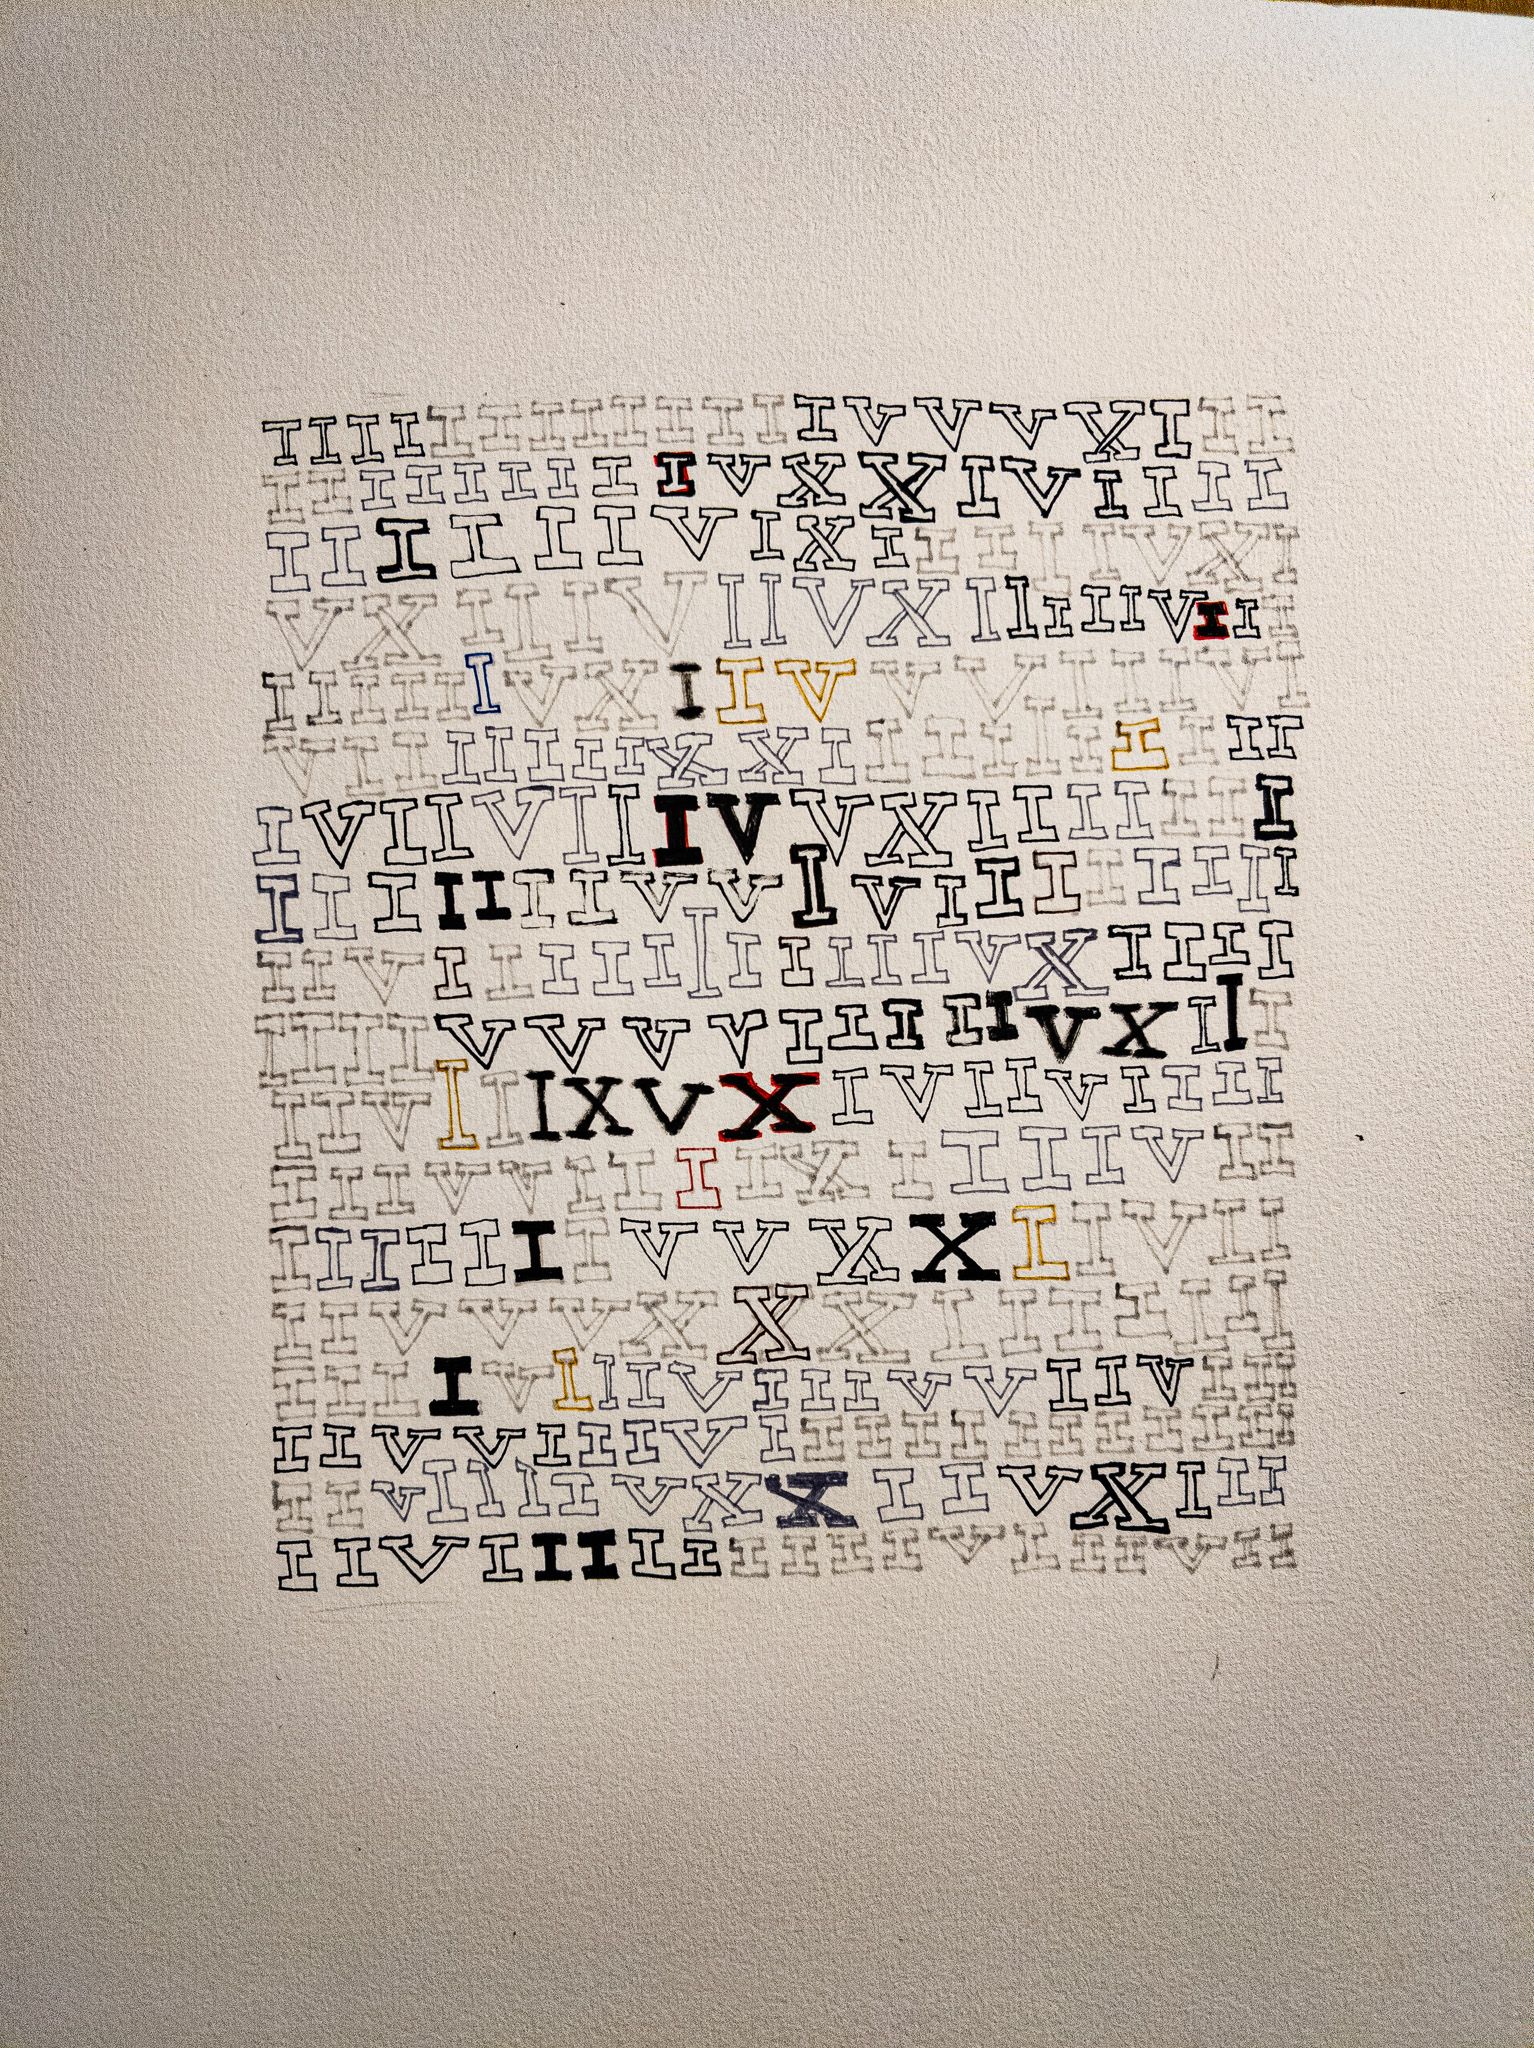 IIIIIIIIIIIIIVVVXIII
IIIIIIIIIVXXIVIIII
IIIIIIVIXIIIIIVXI
VXIIIVIIVXIIIIIVIII
IIIIIIVXIIVVVIIIVI
VIIIIIIIXXIIIIIIIIII
IVIIVIIIVVXIIIIIII
IIIIIIIVVIVIIIIIIII
IIVIIIIIIIIIIIVXIIII
IIIIVVVVIIIIIVXIII
IIVIIIXVXIVIIVIIII
IIIVVIIIIXIIIIVII
IIIIIIIVVXXIIIVII
IIVVVXXXIIIIIII
IIIIVIIIVIIIVVIIVIII
IIVVIIIVIIIIIIIIIIII
IIVIIIIVXXIIVXIII
IIVIIIIIIIIIVIIIVII